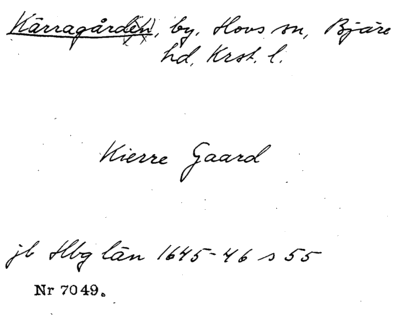 Kärragården, by, Hovs sn, Bjäre
hd, Krst. l.
Kierre Gaard
jb Hbg län 1645-46 s 55
Nr 7049.